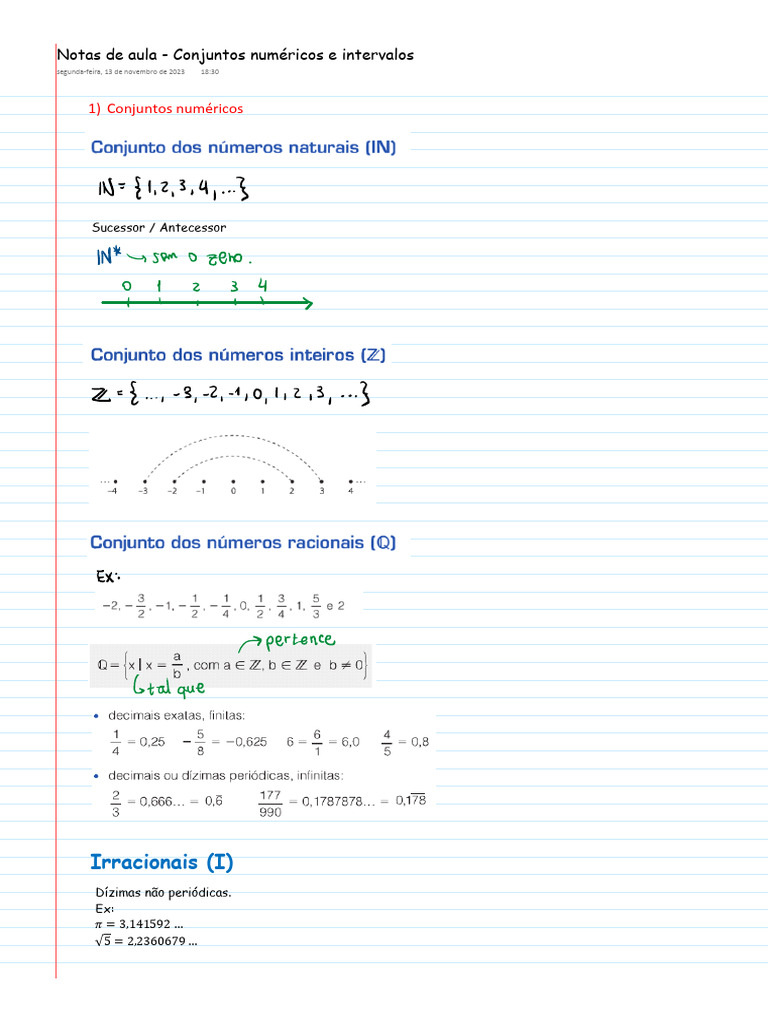 Notas de aula - Conjuntos numéricos e intervalos
segunda-feira, 13 de novembro de 2023 18:30
1) Conjuntos numéricos
Conjunto dos números naturais (IN)
IN = {1, 2, 3, 4, ...}
Sucessor / Antecessor
IN* → sem o zero.
0 1 2 3 4
Conjunto dos números inteiros (ℤ)
ℤ = {..., -3, -2, -1, 0, 1, 2, 3, ...}
... -4 -3 -2 -1 0 1 2 3 4 ...
Conjunto dos números racionais (ℚ)
Ex:
-2, -3/2, -1, -1/2, -1/4, 0, 1/2, 3/4, 1, 5/3 e 2
→ pertence
ℚ = {x | x = a/b, com a ∈ ℤ, b ∈ ℤ e b ≠ 0}
↳ tal que
• decimais exatas, finitas:
1/4 = 0,25 -5/8 = -0,625 6 = 6/1 = 6,0 4/5 = 0,8
• decimais ou dízimas periódicas, infinitas:
2/3 = 0,666... = 0,6̅ 177/990 = 0,1787878... = 0,17̅8̅
Irracionais (I)
Dízimas não periódicas.
Ex:
π = 3,141592 ...
√5 = 2,2360679 ...